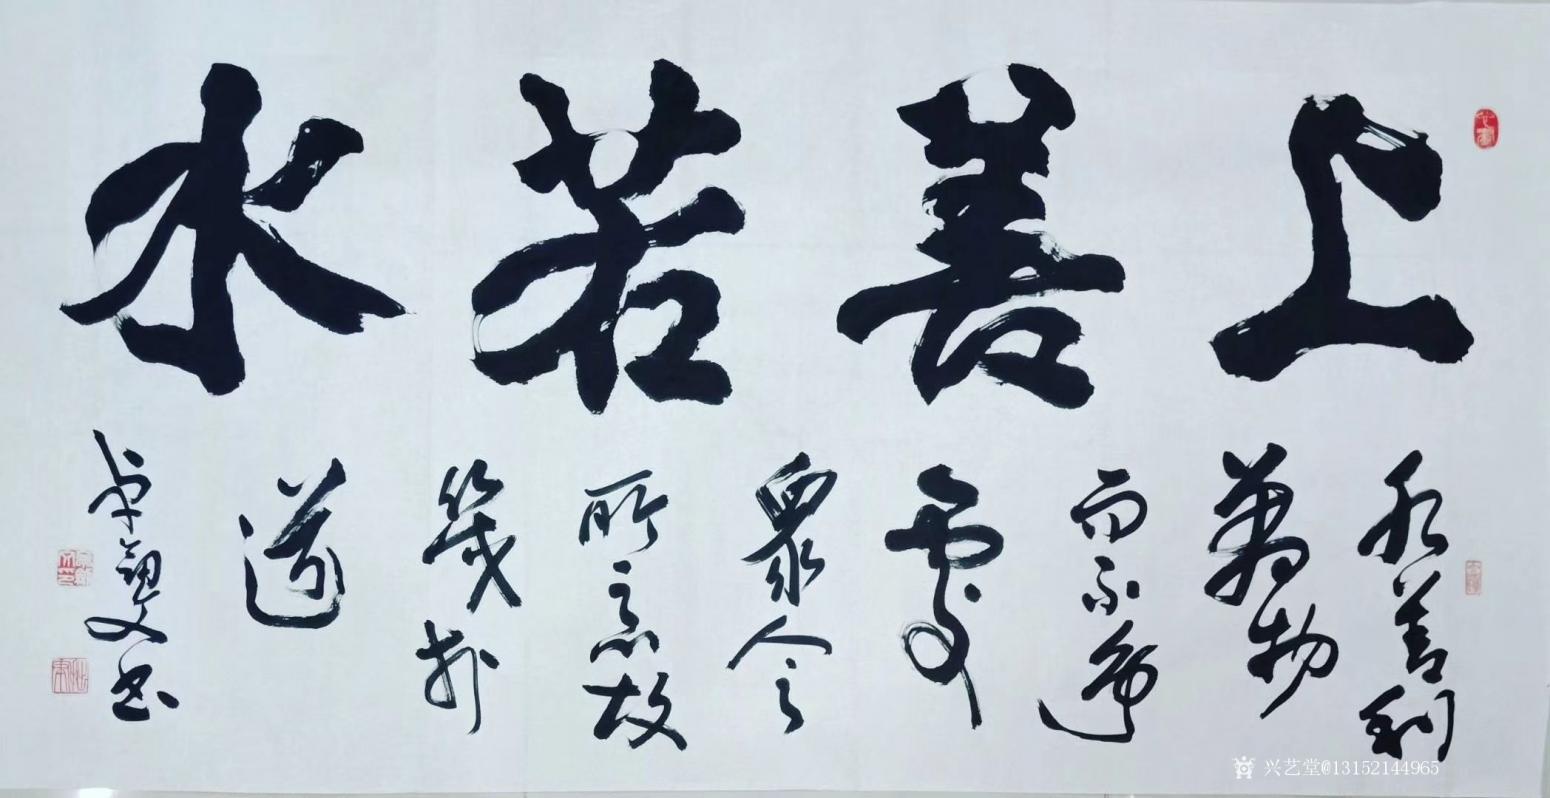 上善若水
水善利
萬物
而不争
處
眾人之
所惡故
幾於
道
文书
兴艺堂@13152144965